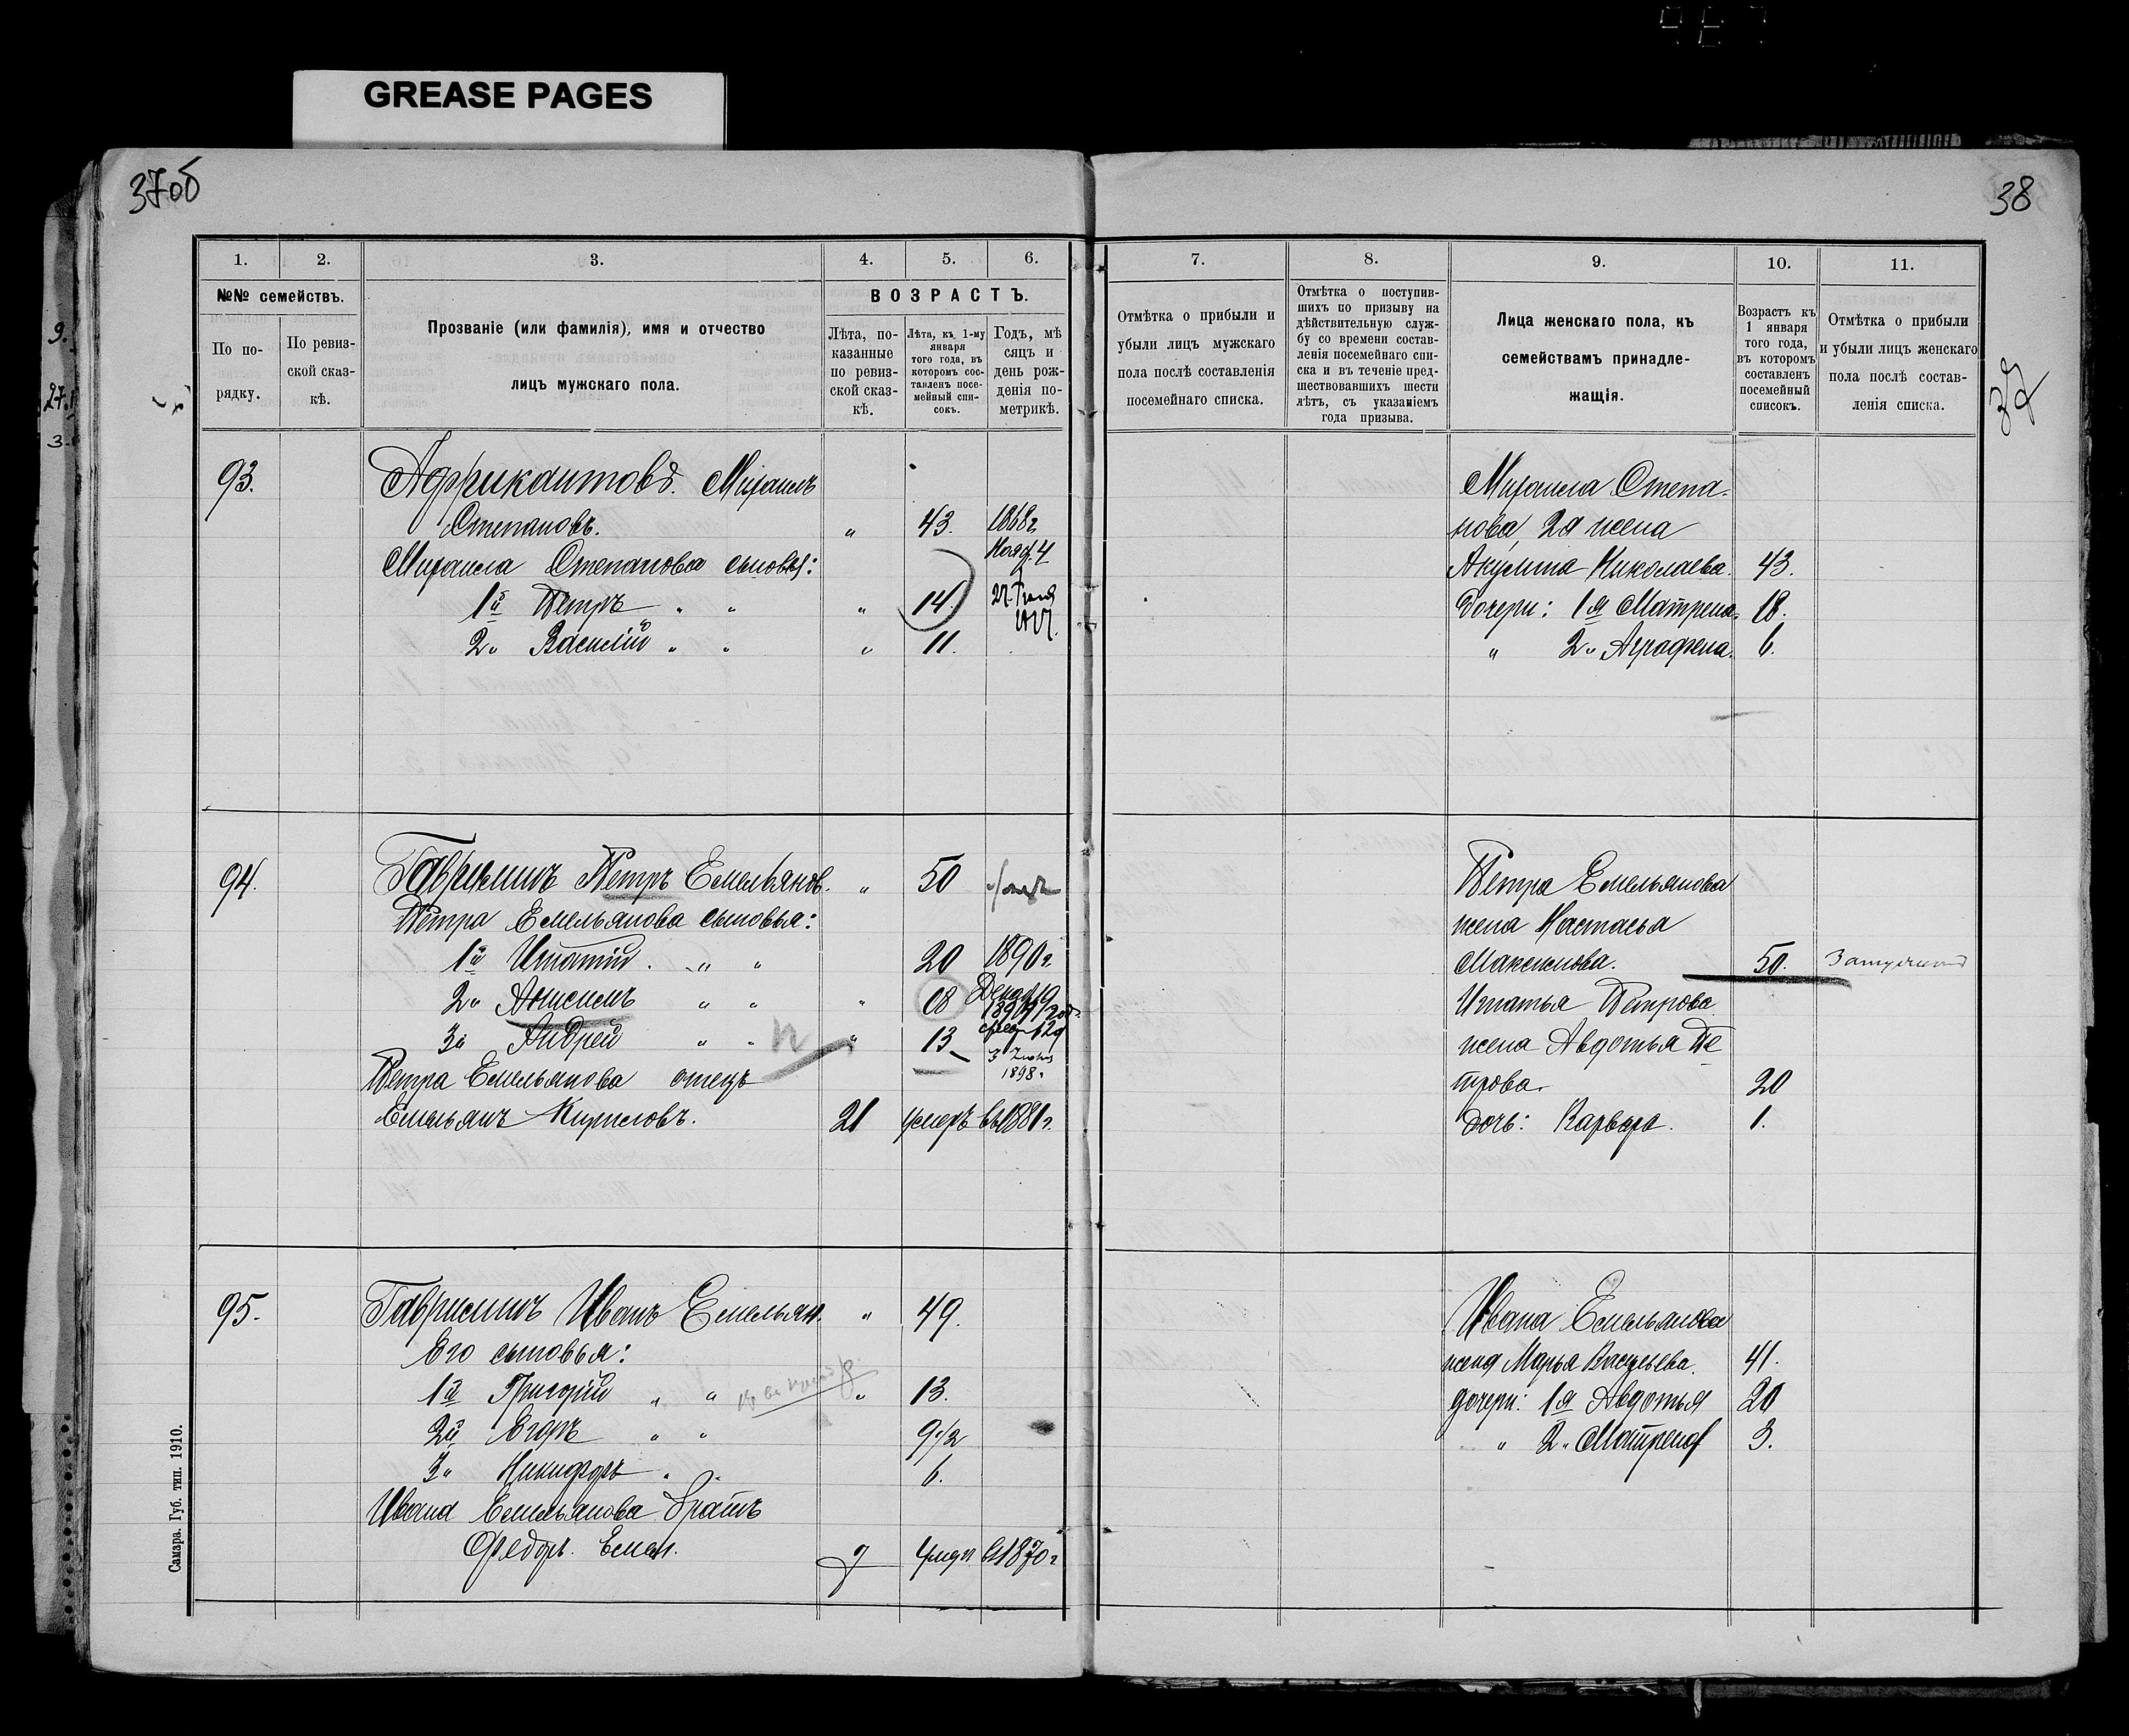 GREASE PAGES
37об
38
1.
2.
3.
4.
5.
6.
№№ семействъ.
По по-
рядку.
По ревиз-
ской сказ-
кѣ.
Прозваніе (или фамилія), имя и отчество
лицъ мужскаго пола.
ВОЗРАСТЪ.
Лѣта, по-
казанные
по ревиз-
ской сказ-
кѣ.
Лѣта, къ 1-му
января
того года, въ
которомъ сос-
тавленъ посе-
мейный спи-
сокъ.
Годъ, мѣ
сяцъ и
день рож-
денія по-
метрикѣ.
7.
8.
9.
10.
11.
Отмѣтка о прибыли и
убыли лицъ мужскаго
пола послѣ составленія
посемейнаго списка.
Отмѣтка о поступив-
шихъ по призыву на
дѣйствительную служ-
бу со времени состав-
ленія посемейнаго спи-
ска и въ теченіе пред-
шествовавшихъ шести
лѣтъ, съ указаніемъ
года призыва.
Лица женскаго пола, къ
семействамъ принадле-
жащія.
Возрастъ къ
1 января
того года,
въ которомъ
составленъ
посемейный
списокъ.
Отмѣтка о прибыли
и убыли лицъ женскаго
пола послѣ состав-
ленія списка.
93.
Африкантовъ. Михаилъ
Степановъ. " 43. 1868 г.
Нояб. 4
Михаила Степанова сыновья:
1й Петръ " " " 14.
2" Василій " " " 11.
Михаила Степа-
нова, 2я жена
Акулина Николаева. 43.
Дочери: 1я Матрена. 18.
" 2" Аграфена. 6.
94.
Гаврилинъ Петръ Емельянов. " 50
Петра Емельянова сыновья:
1й Игнатій. " " 20 1890 г.
2" Анисимъ " " " 18
3й Андрей " " " 13
1898 г.
Петра Емельянова отецъ
Емельянъ Кириловъ. 21 умеръ въ 1881 г.
Петра Емельянова
жена Настасья
Максимова. 50.
Игнатья Петрова
жена Авдотья Пе
трова. 20
дочь: Варвара. 1.
95.
Гаврилинъ Иванъ Емельян. " 49.
Его сыновья:
1й Григорій " " " 13.
2й Егоръ " " 9 1/2
3" Никифоръ " " 6.
Ивана Емельянова братъ
Федоръ. Емел. умеръ въ 1870 г
Ивана Емельянова
жена Марья Васильева. 41.
дочери: 1я Авдотья 20
" 2" Матрена 3.
Самара. Губ. тип. 1910.